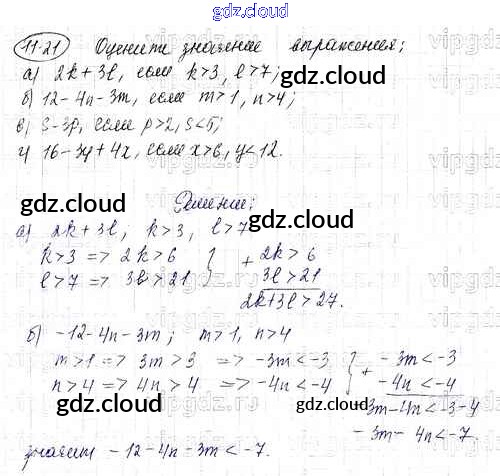 gdz.cloud
11.21 Оцените значение выражения:
а) 2k+3l, если k>3, l>7;
б) 12-4n-3m, если m>1, n>4;
в) s-3p, если p>2, s<5;
г) 16-3y+4x, если x>6, y<12.
Решение:
gdz.cloud gdz.cloud
а) 2k+3l; k>3, l>7
k>3 => 2k>6 } + 2k>6
gdz.cloud gdz.cloud
l>7 => 3l>21 3l>21
2k+3l>27.
б) -12-4n-3m; m>1, n>4
m>1 => 3m>3 => -3m<-3 } + -3m<-3
n>4 => 4n>4 => -4n<-4 -4n<-4
gdz.cloud gdz.cloud
-3m-4n<-3-4
-3m-4n<-7.
значит -12-4n-3m<-7.
gdz.cloud